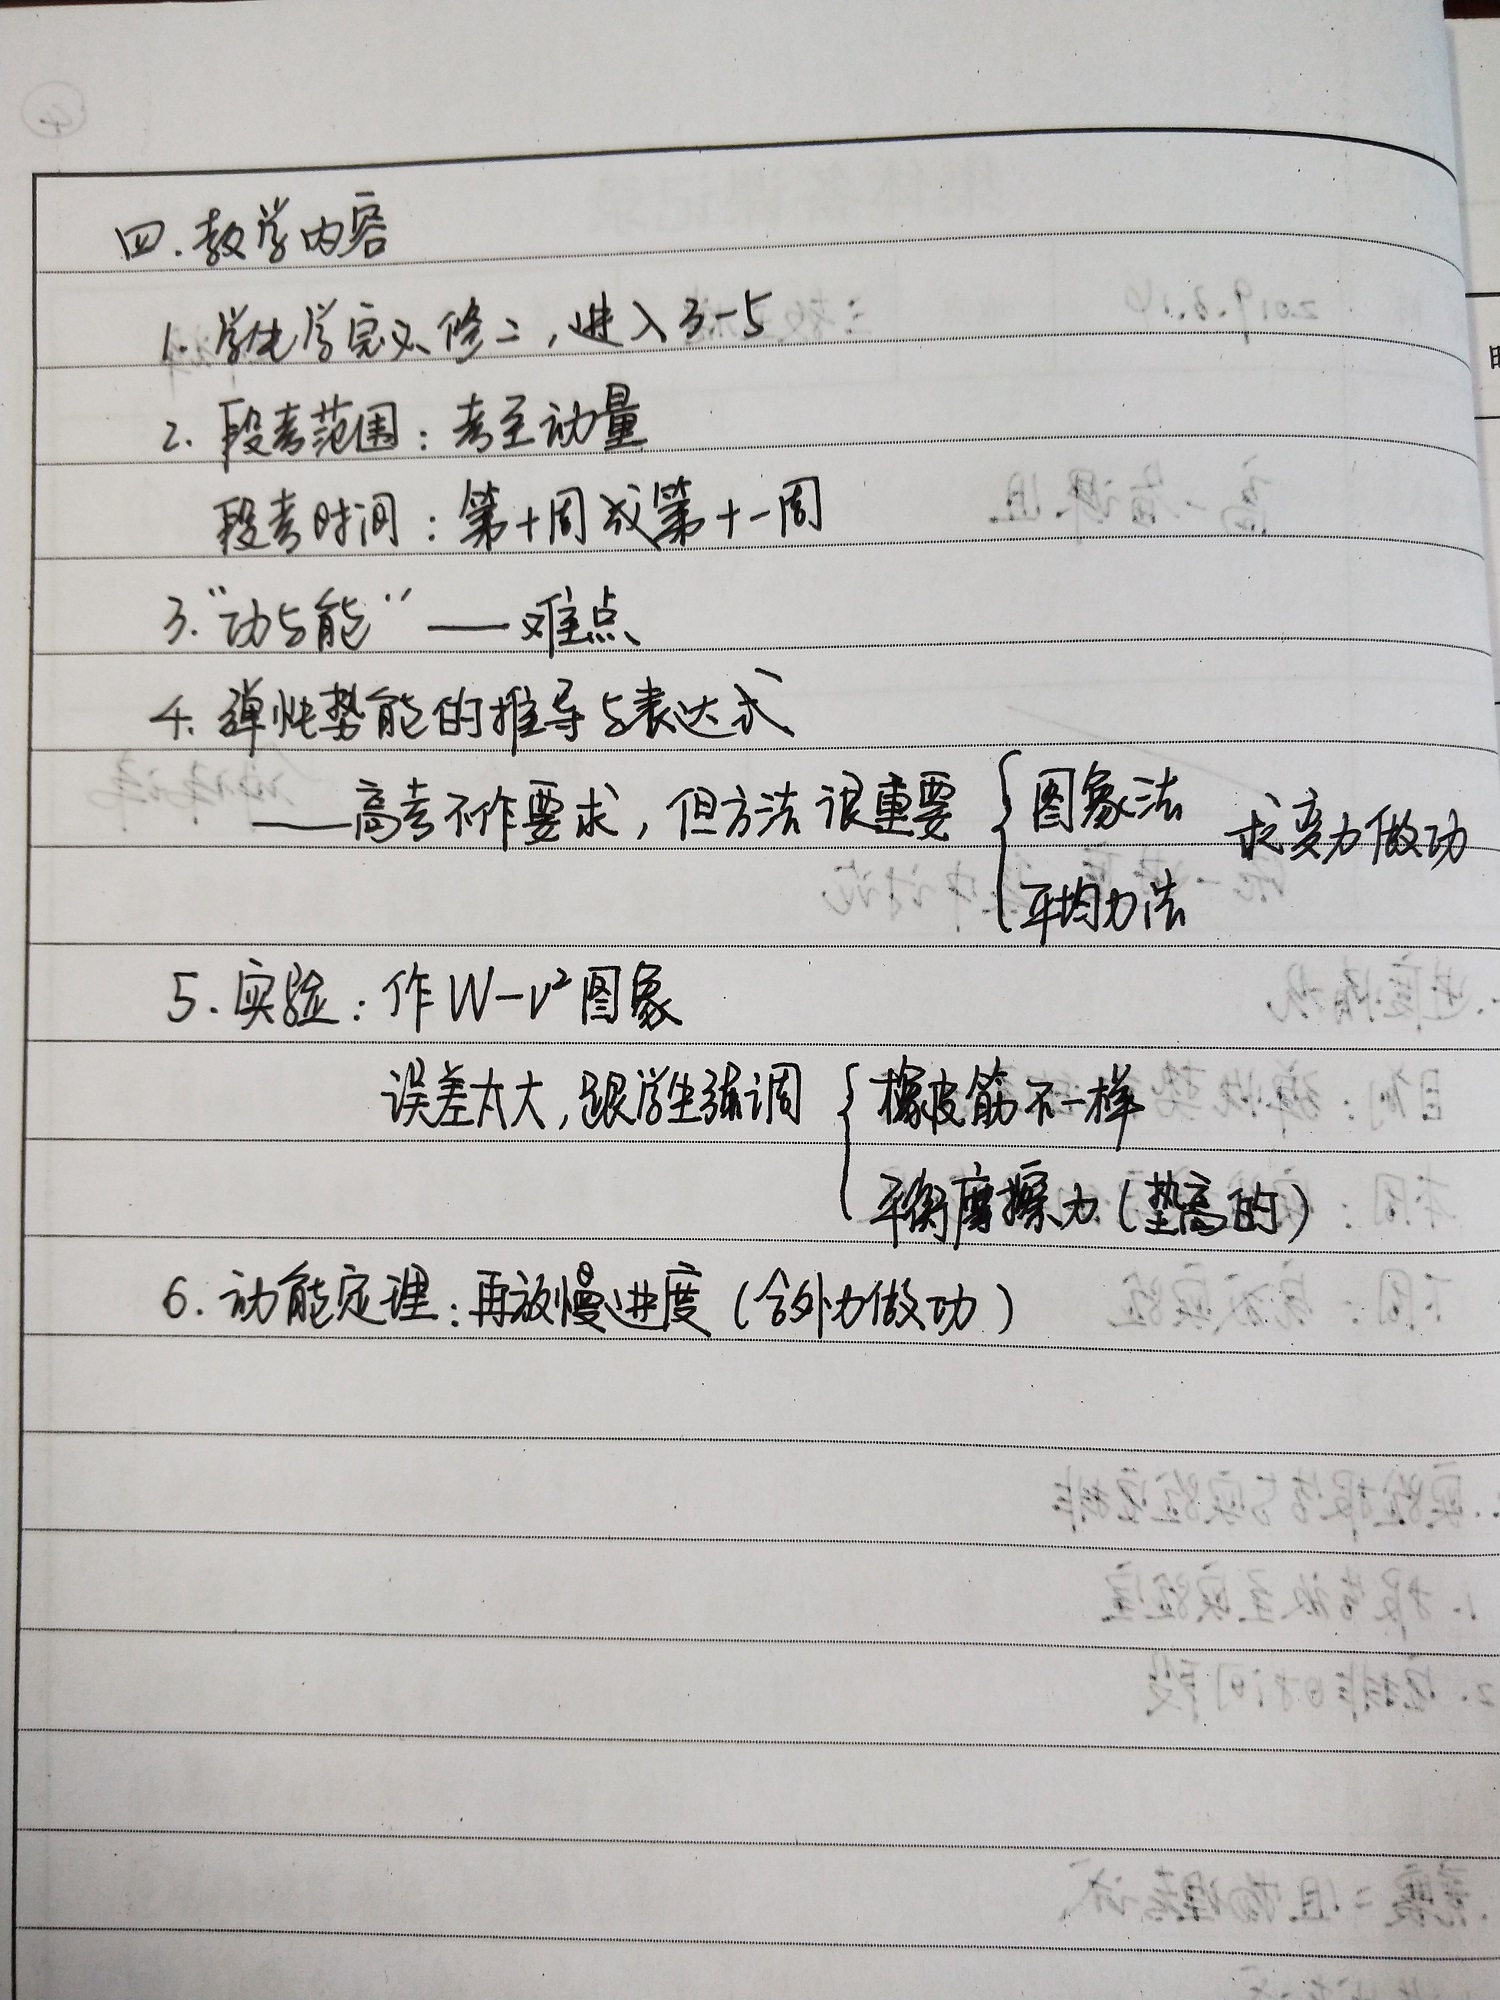 四.教学内容
1. 学生学完必修二,进入3-5
2. 段考范围:考至动量
段考时间:第十周或第十一周
3.“动与能”——难点
4. 弹性势能的推导与表达式
——高考不作要求,但方法很重要 { 图象法 求变力做功
平均力法
5.实验:作W-v²图象
误差太大,跟学生强调 { 橡皮筋不一样
平衡摩擦力(垫高的)
6.动能定理:再放慢进度(合外力做功)